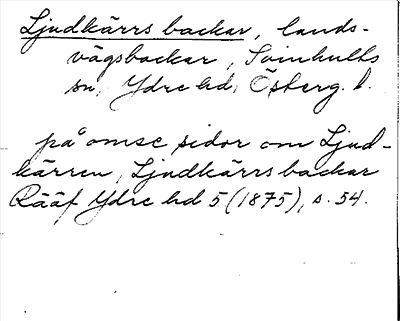 Ljudkärrs backar, lands-
vägsbackar, Svinhults
sn, Ydre hd, Österg. l.
på omse sidor om Ljud-
kärren, Ljudkärrs backar
Rääf Ydre hd 5 (1875), s. 54.